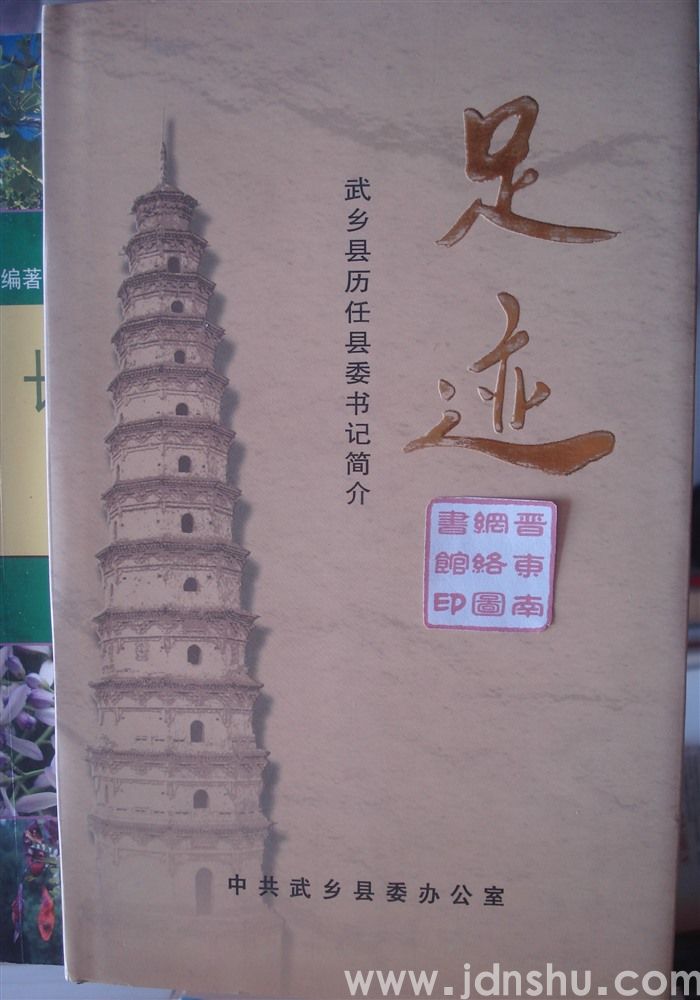 足迹
武乡县历任县委书记简介
晋東南
網絡圖
書館印
中共武乡县委办公室
编著
www.jdnshu.com